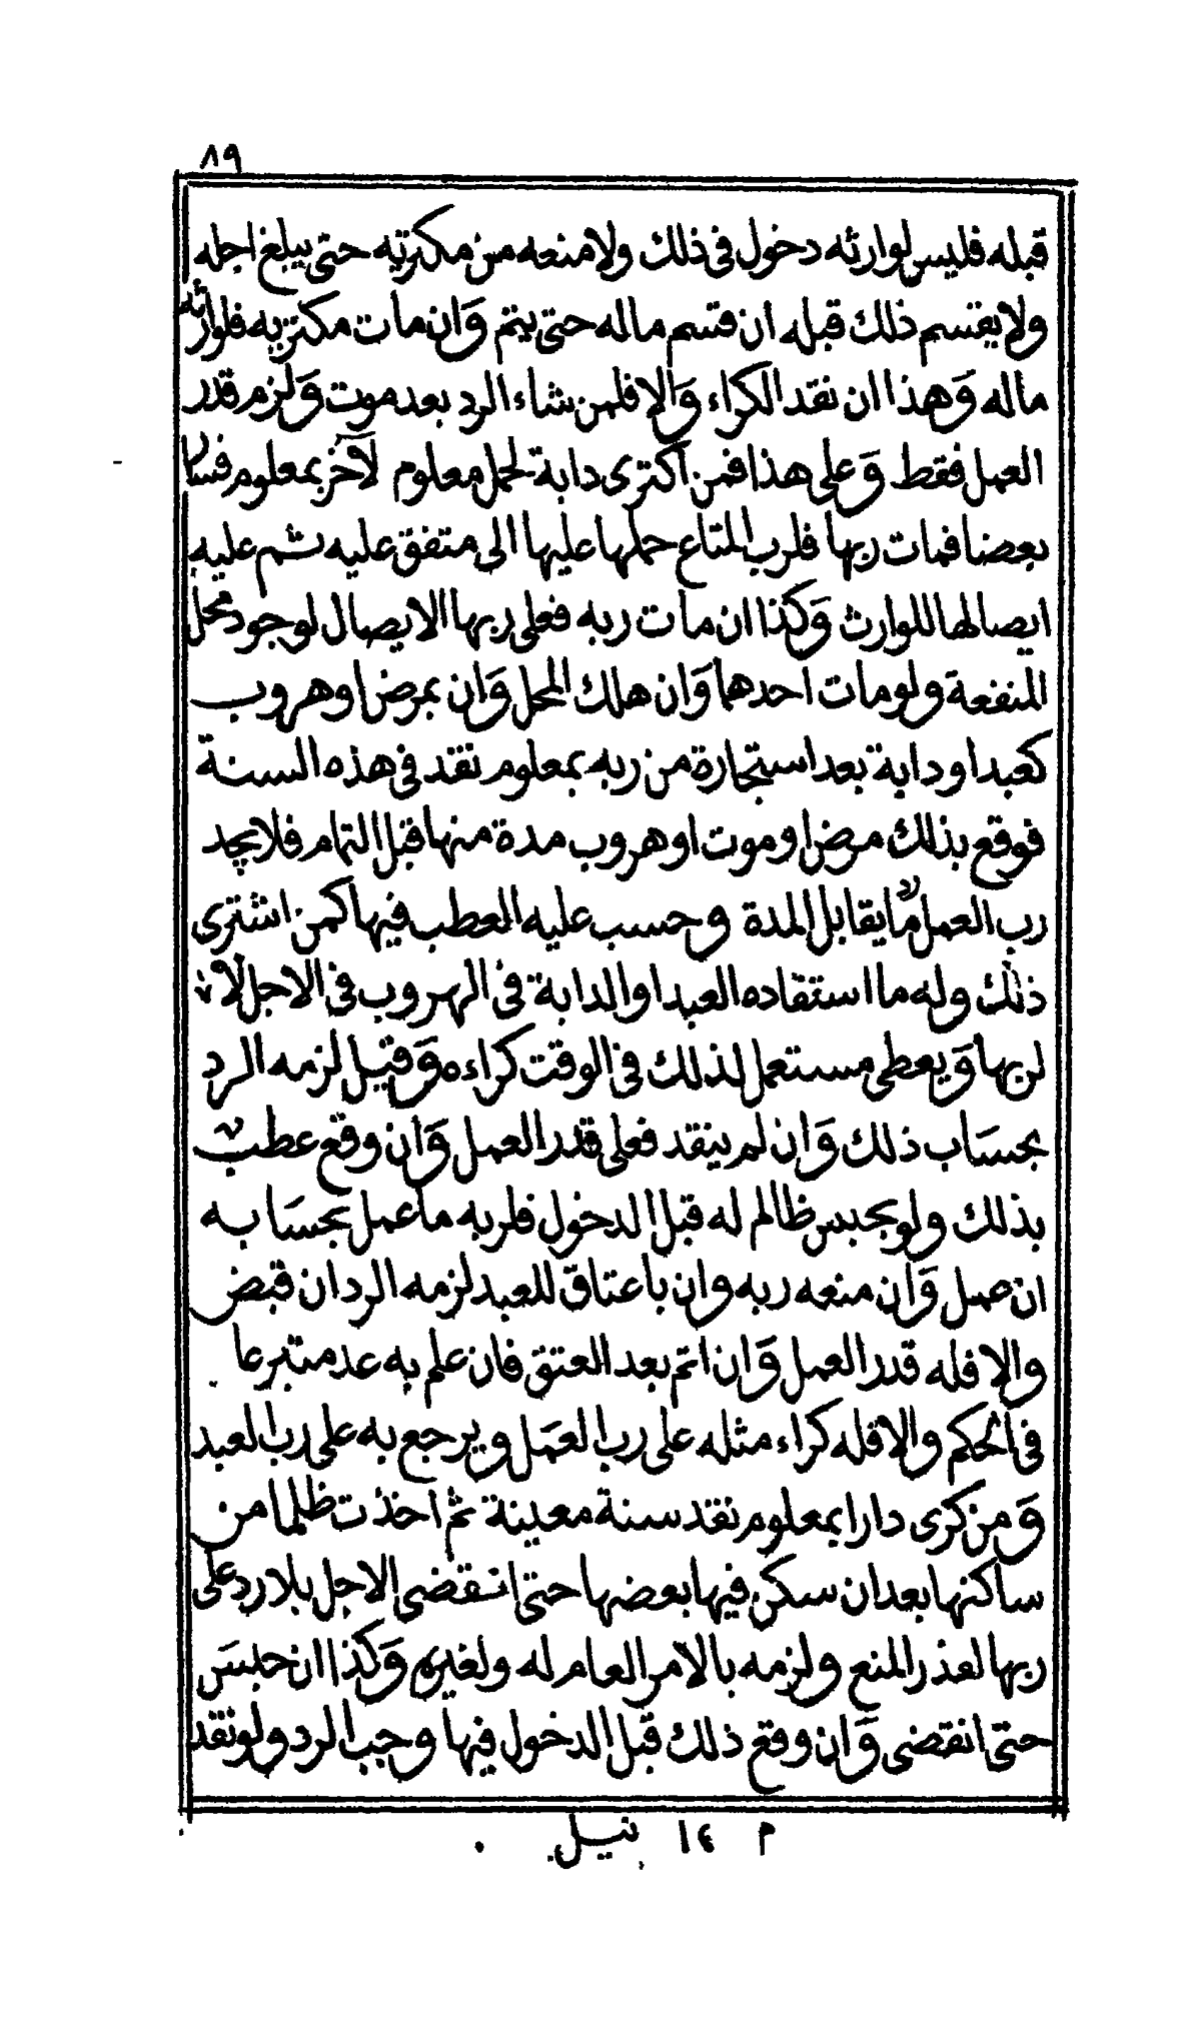 ٨٩
قبله فليس لوارثه دخول فى ذلك ولا منعه من مكتريه حتى يبلغ اجله
ولا يقتسم ذلك قبله ان قتسم ماله حتى يتم وَان مات مكتريه فلوارثه
ماله وَهذا ان نقد الكراء وَالا فلمن شاء الرد بعد موت وَلزم قدر
العمل فقط وَعلى هذا فمن اكترى دابة لحمل معلوم لآخر بمعلوم فسار
بعضا فمات ربها فلرب المتاع حملها عليها الى متفق عليه ثم عليه
ايصالها للوارث وَكذا ان مات ربه فعلى ربها الايصال لوجود محل
المنفعة ولو مات احدهما وَان هلك المحل وَان بمرض او هروب
كعبد او دابة بعد استجارة من ربه بمعلوم نقد فى هذه السنة
فوقع بذلك مرض او موت او هروب مدة منها قبل التمام فلا يجد
رب العمل رد ما يقابل المدة وحسب عليه العطب فيها كمن اشترى
ذلك وله ما استفاده العبد او الدابة فى الهروب فى الاجل لا
لربها وَيعطى مستعمل لذلك فى الوقت كراءه وَقيل لزمه الرد
بحسَاب ذلك وَان لم ينقد فعلى قدر العمل وَان وقع عطب
بذلك ولو بحبس ظالم له قبل الدخول فلربه ما عمل بحسَابه
ان عمل وَان منعه ربه وان باعتاق للعبد لزمه الرد ان قبض
والا فله قدر العمل وَان اتم بعد العتق فان علم به عد متبرعا
فى الحكم والا فله كراء مثله على رب العمَل ويرجع به على رب العبد
وَمن كرى دارا بمعلوم نقد سنة معينة ثم اخذت ظلما من
ساكنها بعد ان سكن فيها بعضها حتى انقضى الاجل بلا رد على
ربها لعذر المنع ولزمه بالامر العام له ولغيره وَكذا ان حبسَ
حتى انقضى وَان وقع ذلك قبل الدخول فيها وجب الرد ولو نقد
م ١٤ نيل